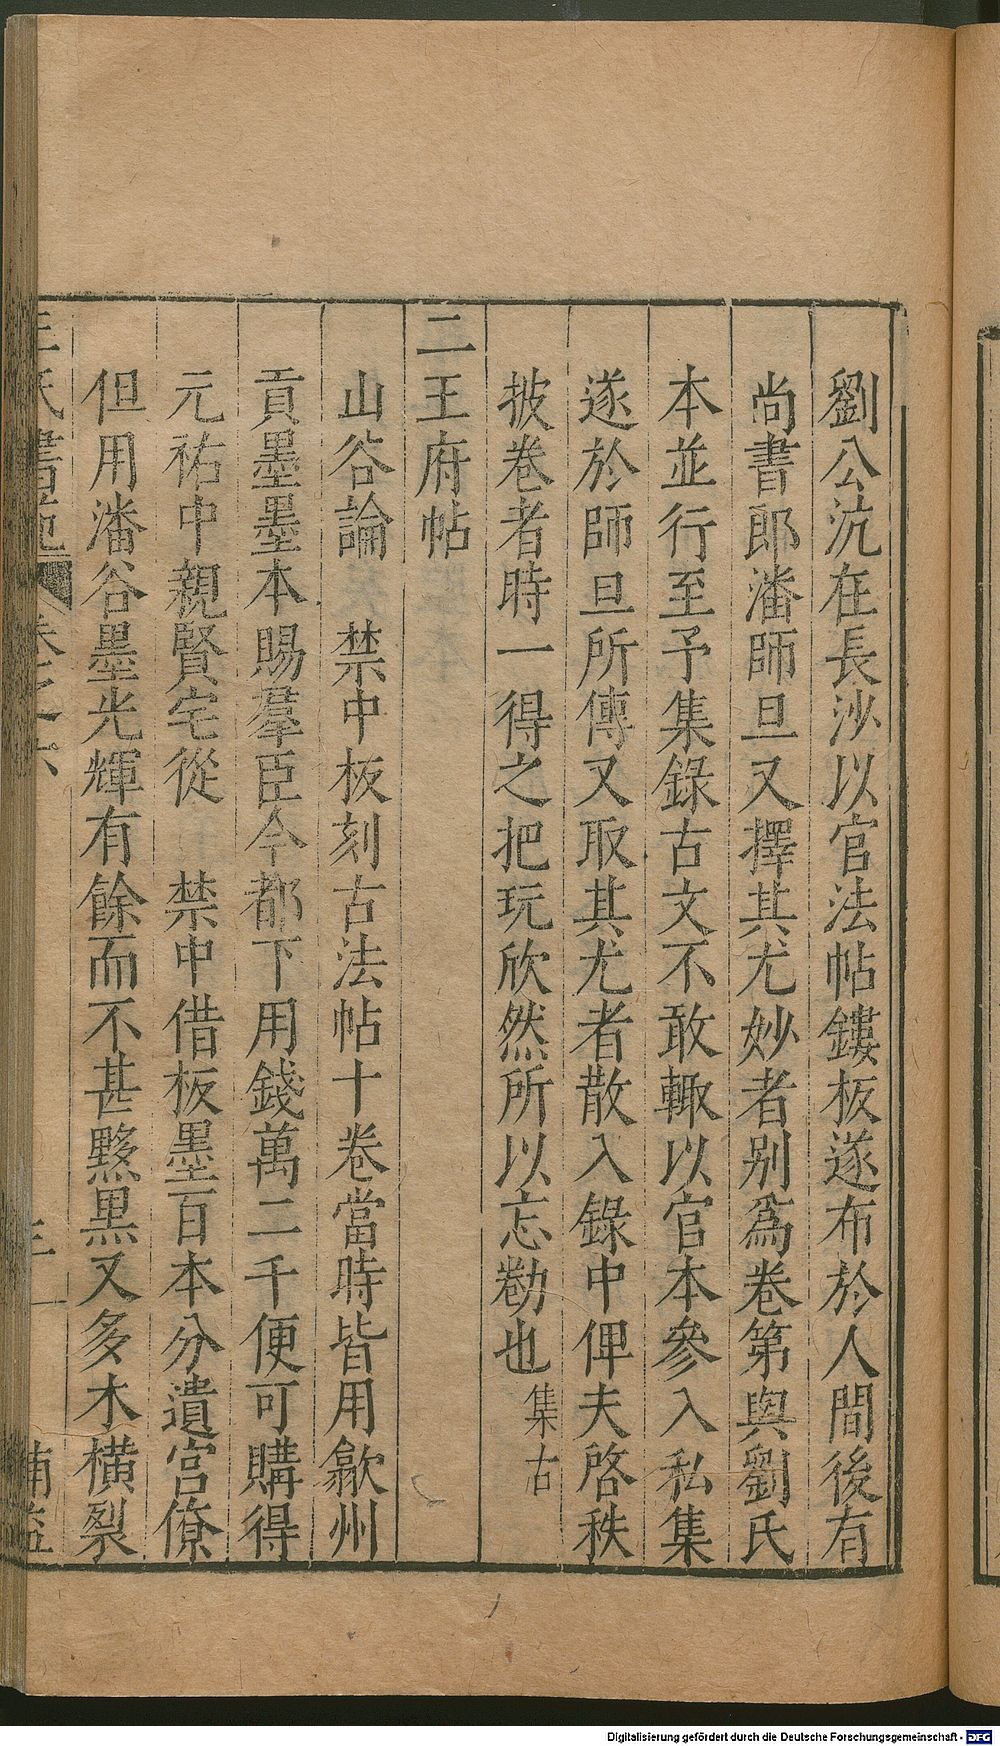 劉公沆在長沙以官法帖鏤板遂布於人間後有
尚書郎潘師旦又擇其尤妙者別爲卷第與劉氏
本並行至予集錄古文不敢輙以官本參入私集
遂於師旦所傳又取其尤者散入錄中俾夫啓秩
披卷者時一得之把玩欣然所以忘勌也 集古
二王府帖
山谷論 禁中板刻古法帖十卷當時皆用歙州
貢墨墨本賜羣臣今都下用錢萬二千便可購得
元祐中親賢宅從 禁中借板墨百本分遺宮僚
但用潘谷墨光輝有餘而不甚黟黒又多木橫裂
王氏書苑 卷之六
Digitalisierung gefördert durch die Deutsche Forschungsgemeinschaft - DFG